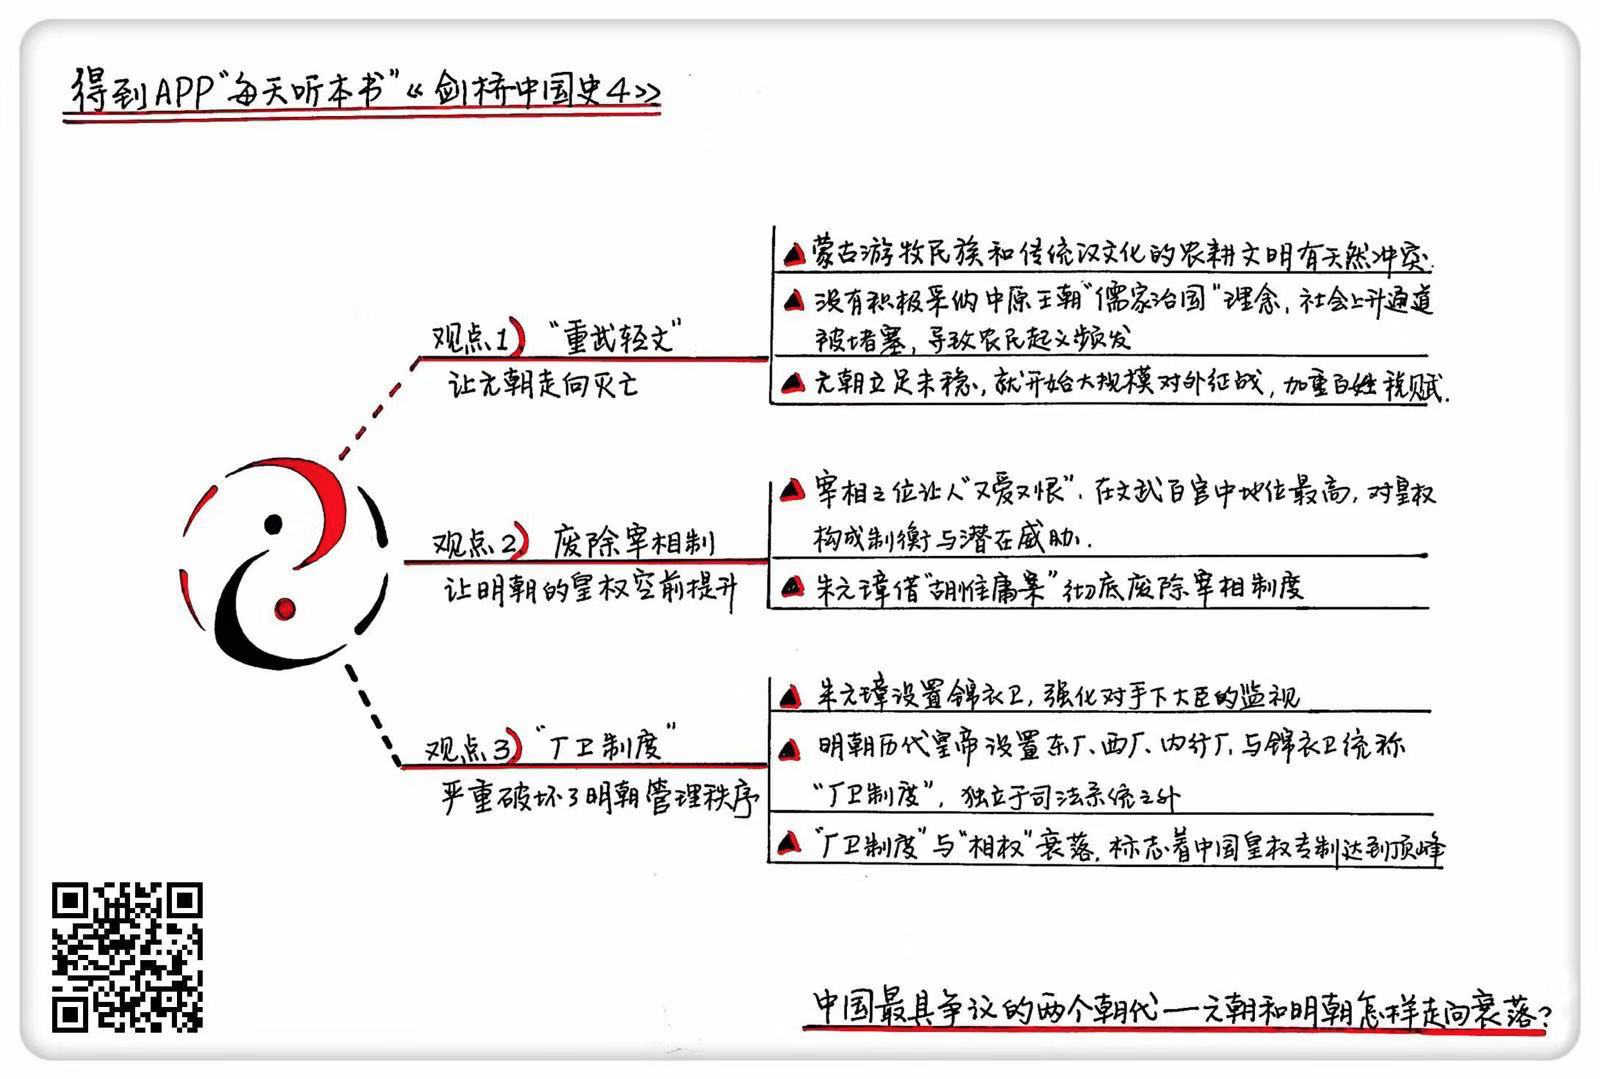 得到APP“每天听本书”《剑桥中国史4》
观点1) “重武轻文”
让元朝走向灭亡
▲蒙古游牧民族和传统汉文化的农耕文明有天然冲突.
▲没有积极采纳中原王朝“儒家治国”理念，社会上升通道
被堵塞，导致农民起义频发
▲元朝立足未稳，就开始大规模对外征战，加重百姓税赋.
观点2) 废除宰相制
让明朝的皇权空前提升
▲宰相之位让人“又爱又恨”.在文武百官中地位最高，对皇权
构成制衡与潜在威胁.
▲朱元璋借“胡惟庸案”彻底废除宰相制度
观点3) “厂卫制度”
严重破坏了明朝管理秩序
▲朱元璋设置锦衣卫，强化对手下大臣的监视
▲明朝历代皇帝设置东厂、西厂、内行厂，与锦衣卫统称
“厂卫制度”，独立于司法系统之外
▲“厂卫制度”与“相权”衰落，标志着中国皇权专制达到顶峰
中国最具争议的两个朝代—元朝和明朝怎样走向衰落？